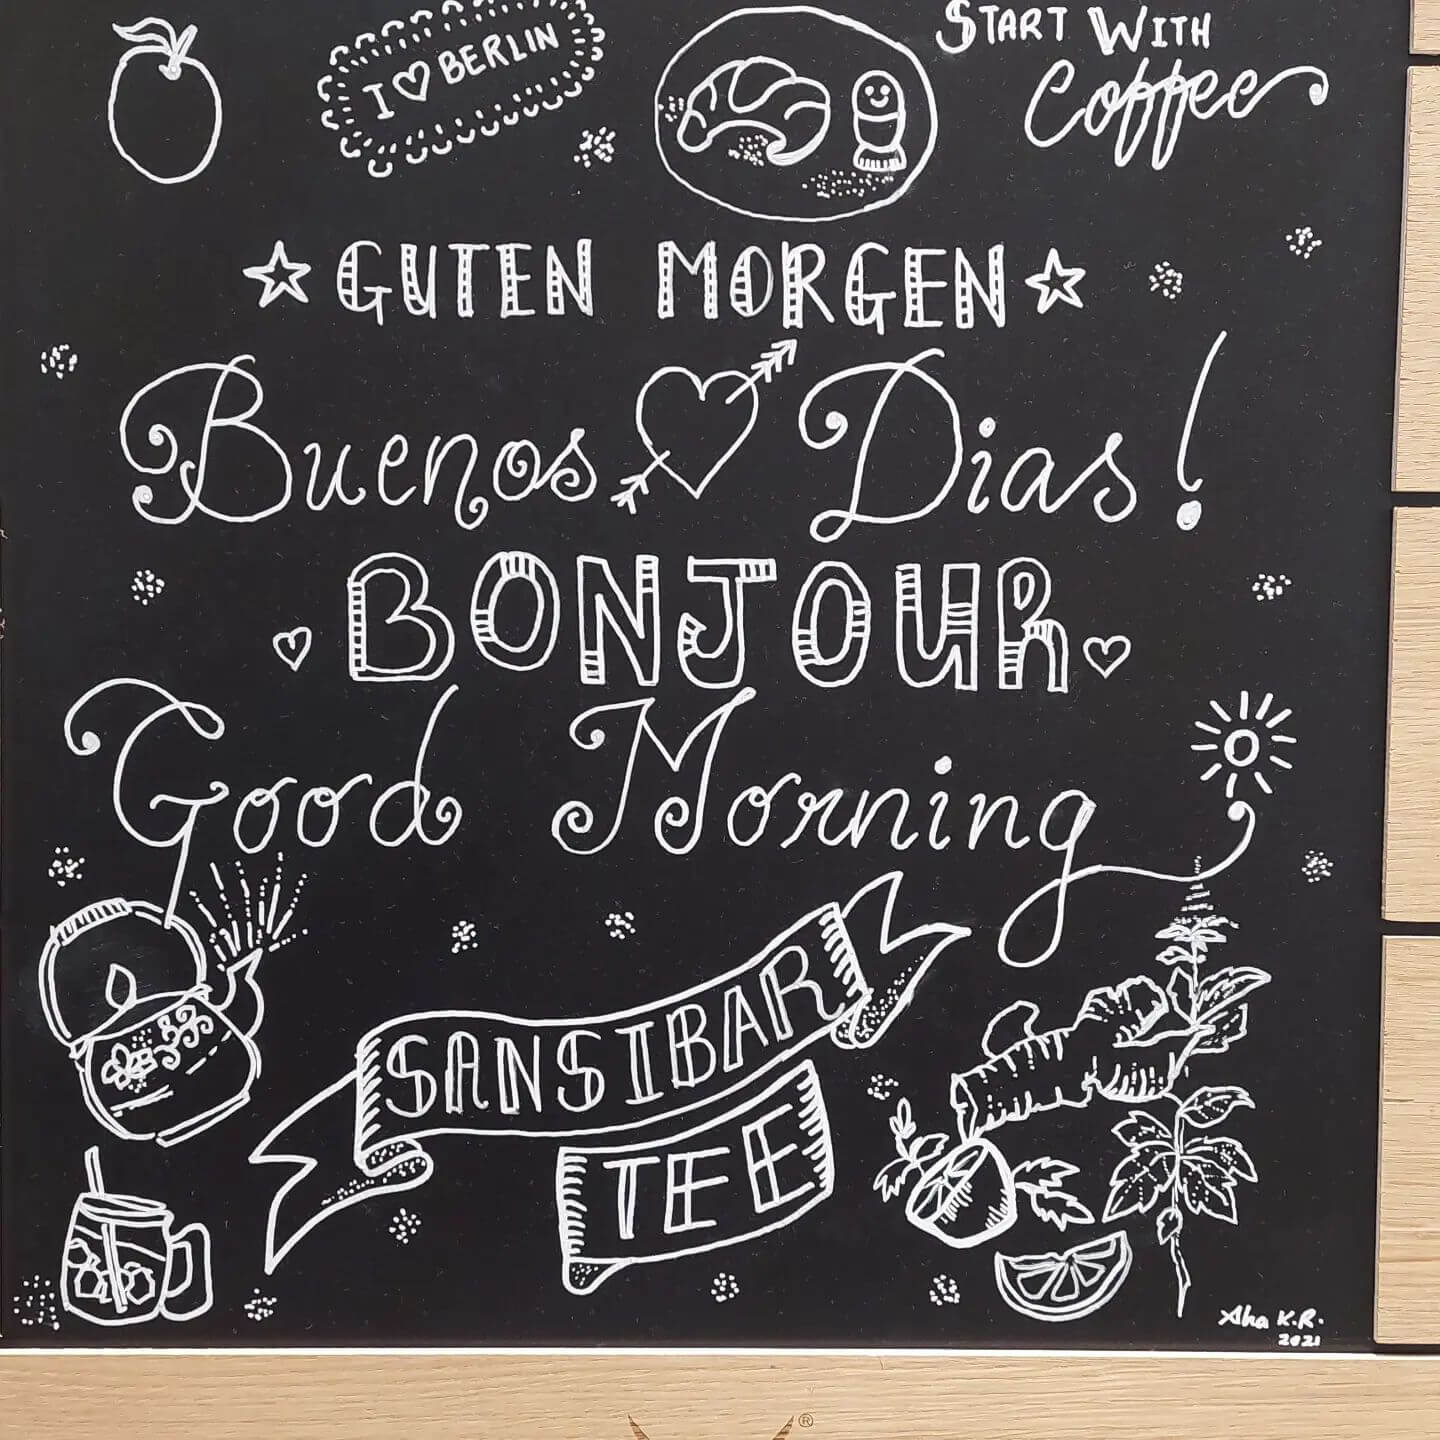 I ♡ BERLIN
START WITH
Coffee
GUTEN MORGEN
Buenos Dias!
BONJOUR
Good Morning
SANSIBAR
TEE
K.R.
2021
®